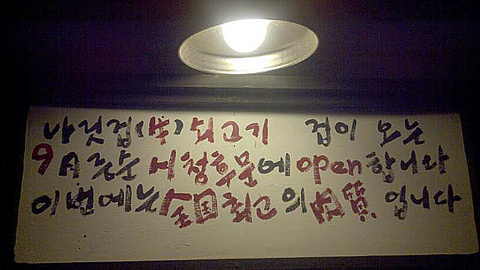 나릿집(失) 쇠고기 집이 오는
9月 군산 시청후문에 open합니다
이번에는 全国 최고의 肉質 입니다